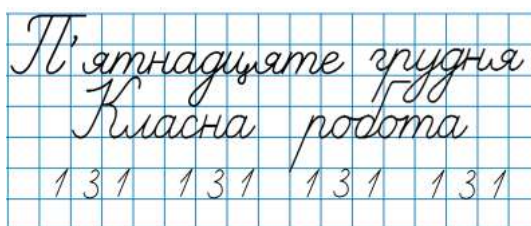 П'ятнадцяте грудня
Класна робота
1 3 1 1 3 1 1 3 1 1 3 1